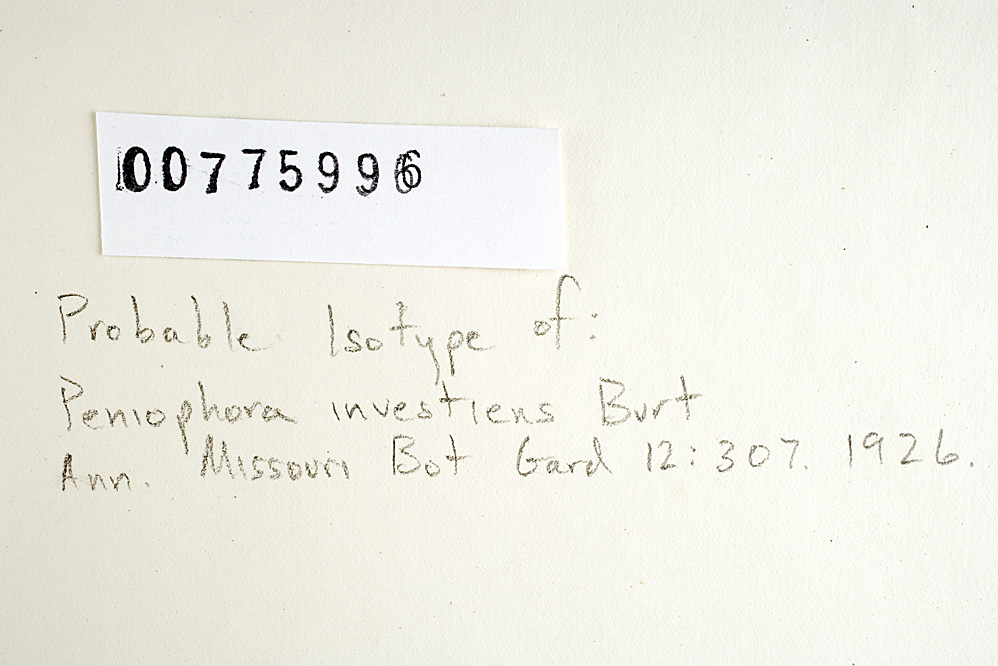 00775996
Probable Isotype of:
Peniophora investiens Burt
Ann. Missouri Bot Gard 12: 307. 1926.